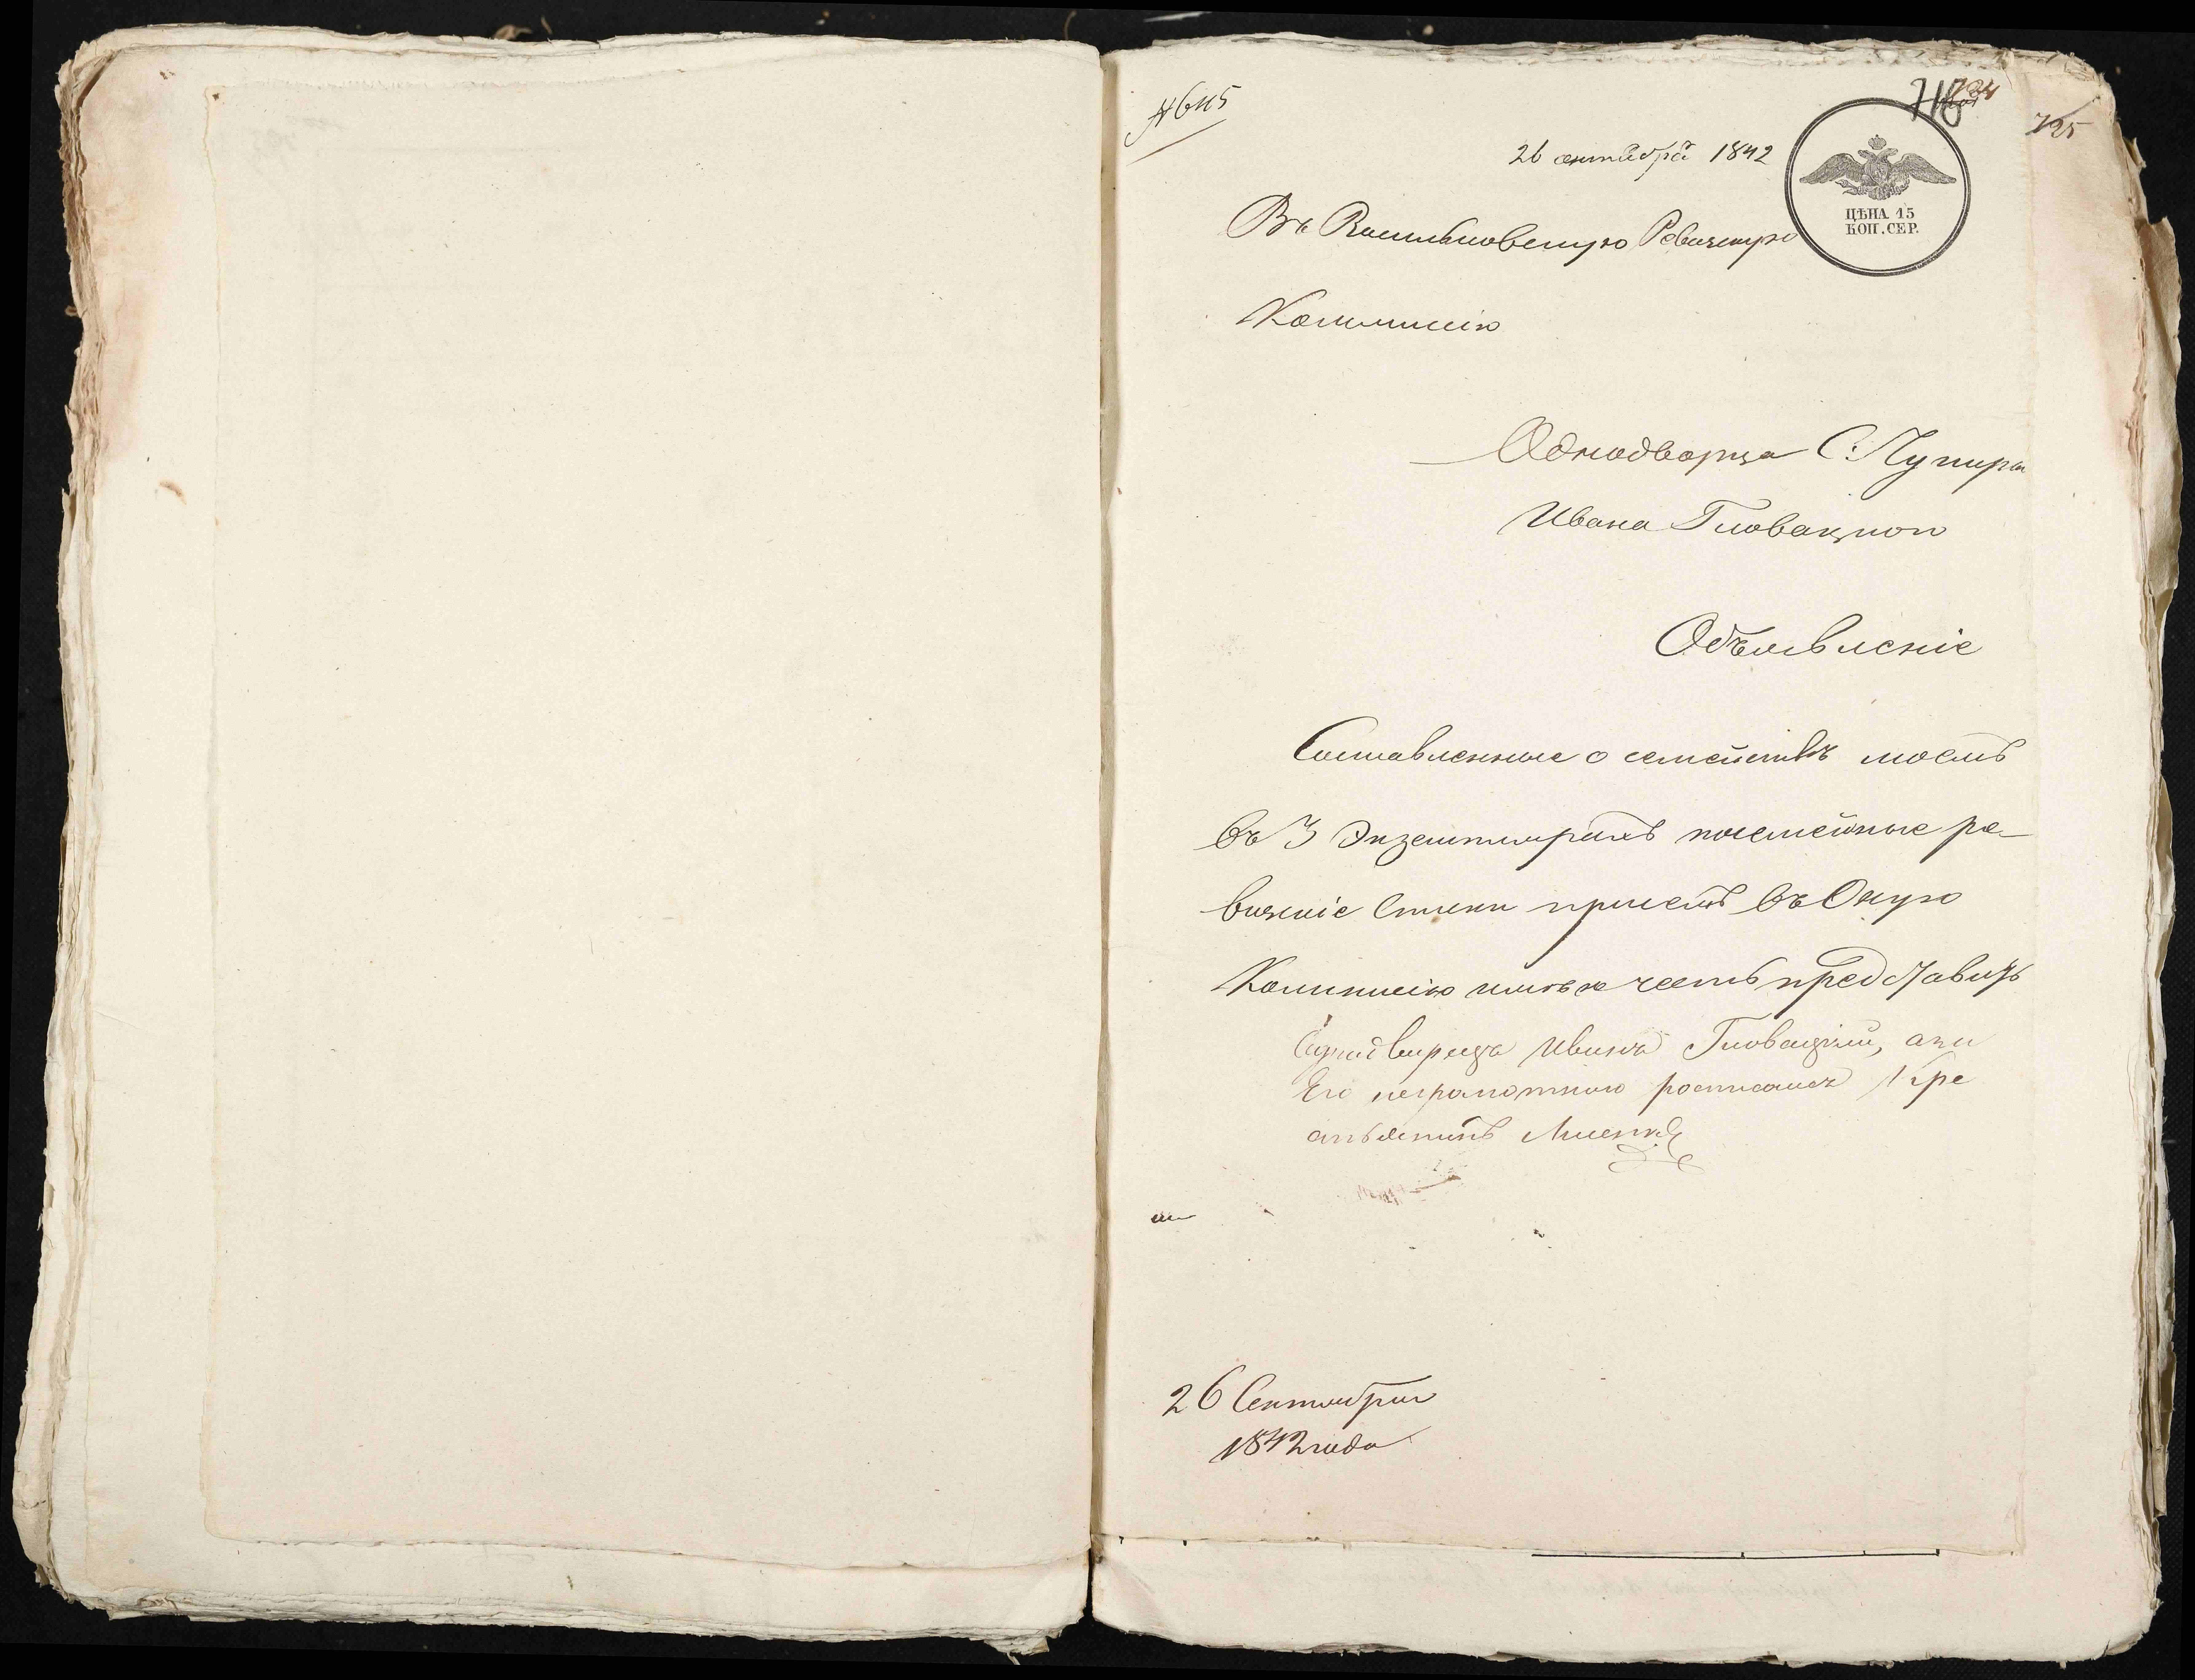 26 сентября 1842
725
ЦѢНА 15
КОП. СЕР.
Въ Васильковскую Ревизскую
Коммисію
Однодворца С. Пугира
Ивана Гловацкого
Объявленіе
Составленные о семействѣ моемъ
въ 3 Экземплярахъ посемейные ре-
визскіе списки при семъ въ Оную
Коммисію имѣю честь представить
Однодворецъ Иванъ Гловацкій, а за
Его неграмотного росписался
26 Сентября
1842 года